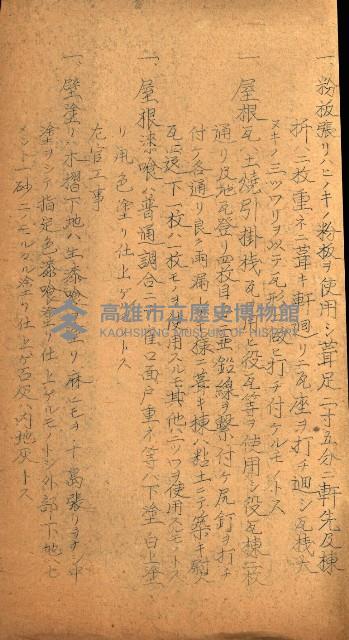 一、粉板張リハヒノキノ粉板ヲ使用シ葺足二寸五分ニ軒先及棟
折ハ二枚重ネニ葺キ軒廻リニ瓦座ヲ打チ廻シ瓦桟大
ヌキノ三ツワリヲ以テ瓦形ニ倣ヒ打チ付ケルモノトス
一、屋根瓦ハ土焼引掛桟瓦ニ役瓦等ヲ使用シ役瓦棟ハ一枚
通リ及地瓦登リ四枚目毎ニ亜鉛線ヲ繋付ケ尻釘ヲ打チ
付ケ各通リ良ク雨漏ノ様ニ葺キ棟ハ粘土ニテ築キ熨斗
瓦ニ返下一枚ハ一枚モヲ使用スルモ其他ハ二ツワヲ使用スルモノトス
一、屋根漆喰ハ普通調合ニ雀口面戸重ネ等ハ下塗白上塗
リ鼠色塗リ仕上ゲトス
左官工事
一、壁塗リハ木摺下地ハ生漆喰塗リ麻ヒモヲ千鳥張リヲナシ中
塗ヲシテ指定色漆喰塗リ仕上ゲルモノトシ外部下地ハセ
メント一砂三ノモルタル塗リ仕上ゲ石灰ハ内地灰トス
高雄市立歷史博物館
KAOHSIUNG MUSEUM OF HISTORY